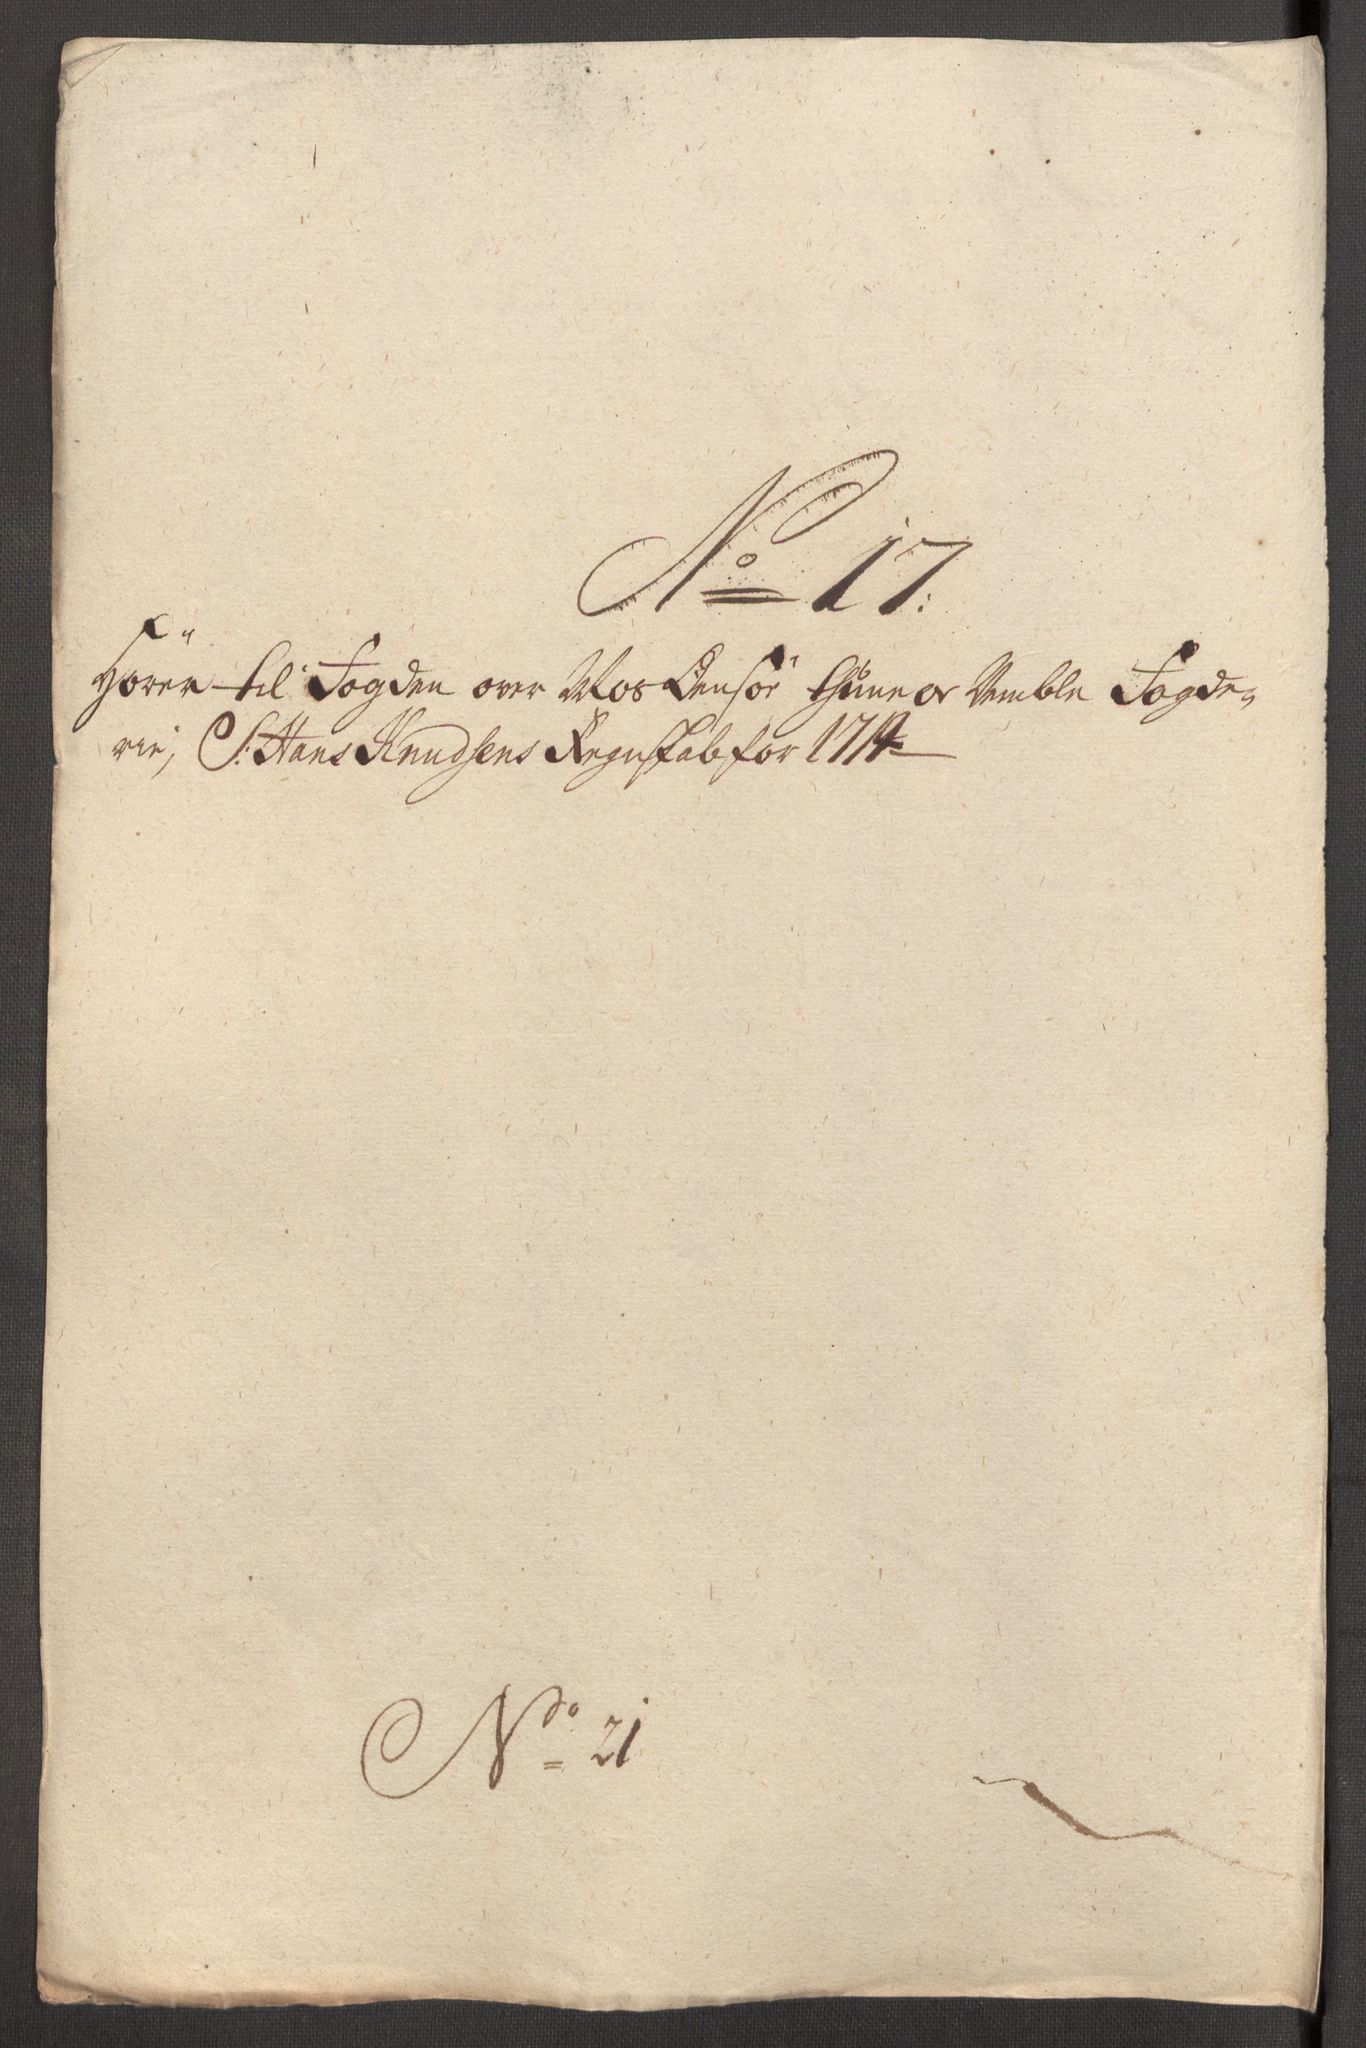 No 17:
Hörer til Fogden over Mos Onsöe Thune og Vemble Fogde-
rie, S: Hans Knudsens Regnskab for 1714
No 21